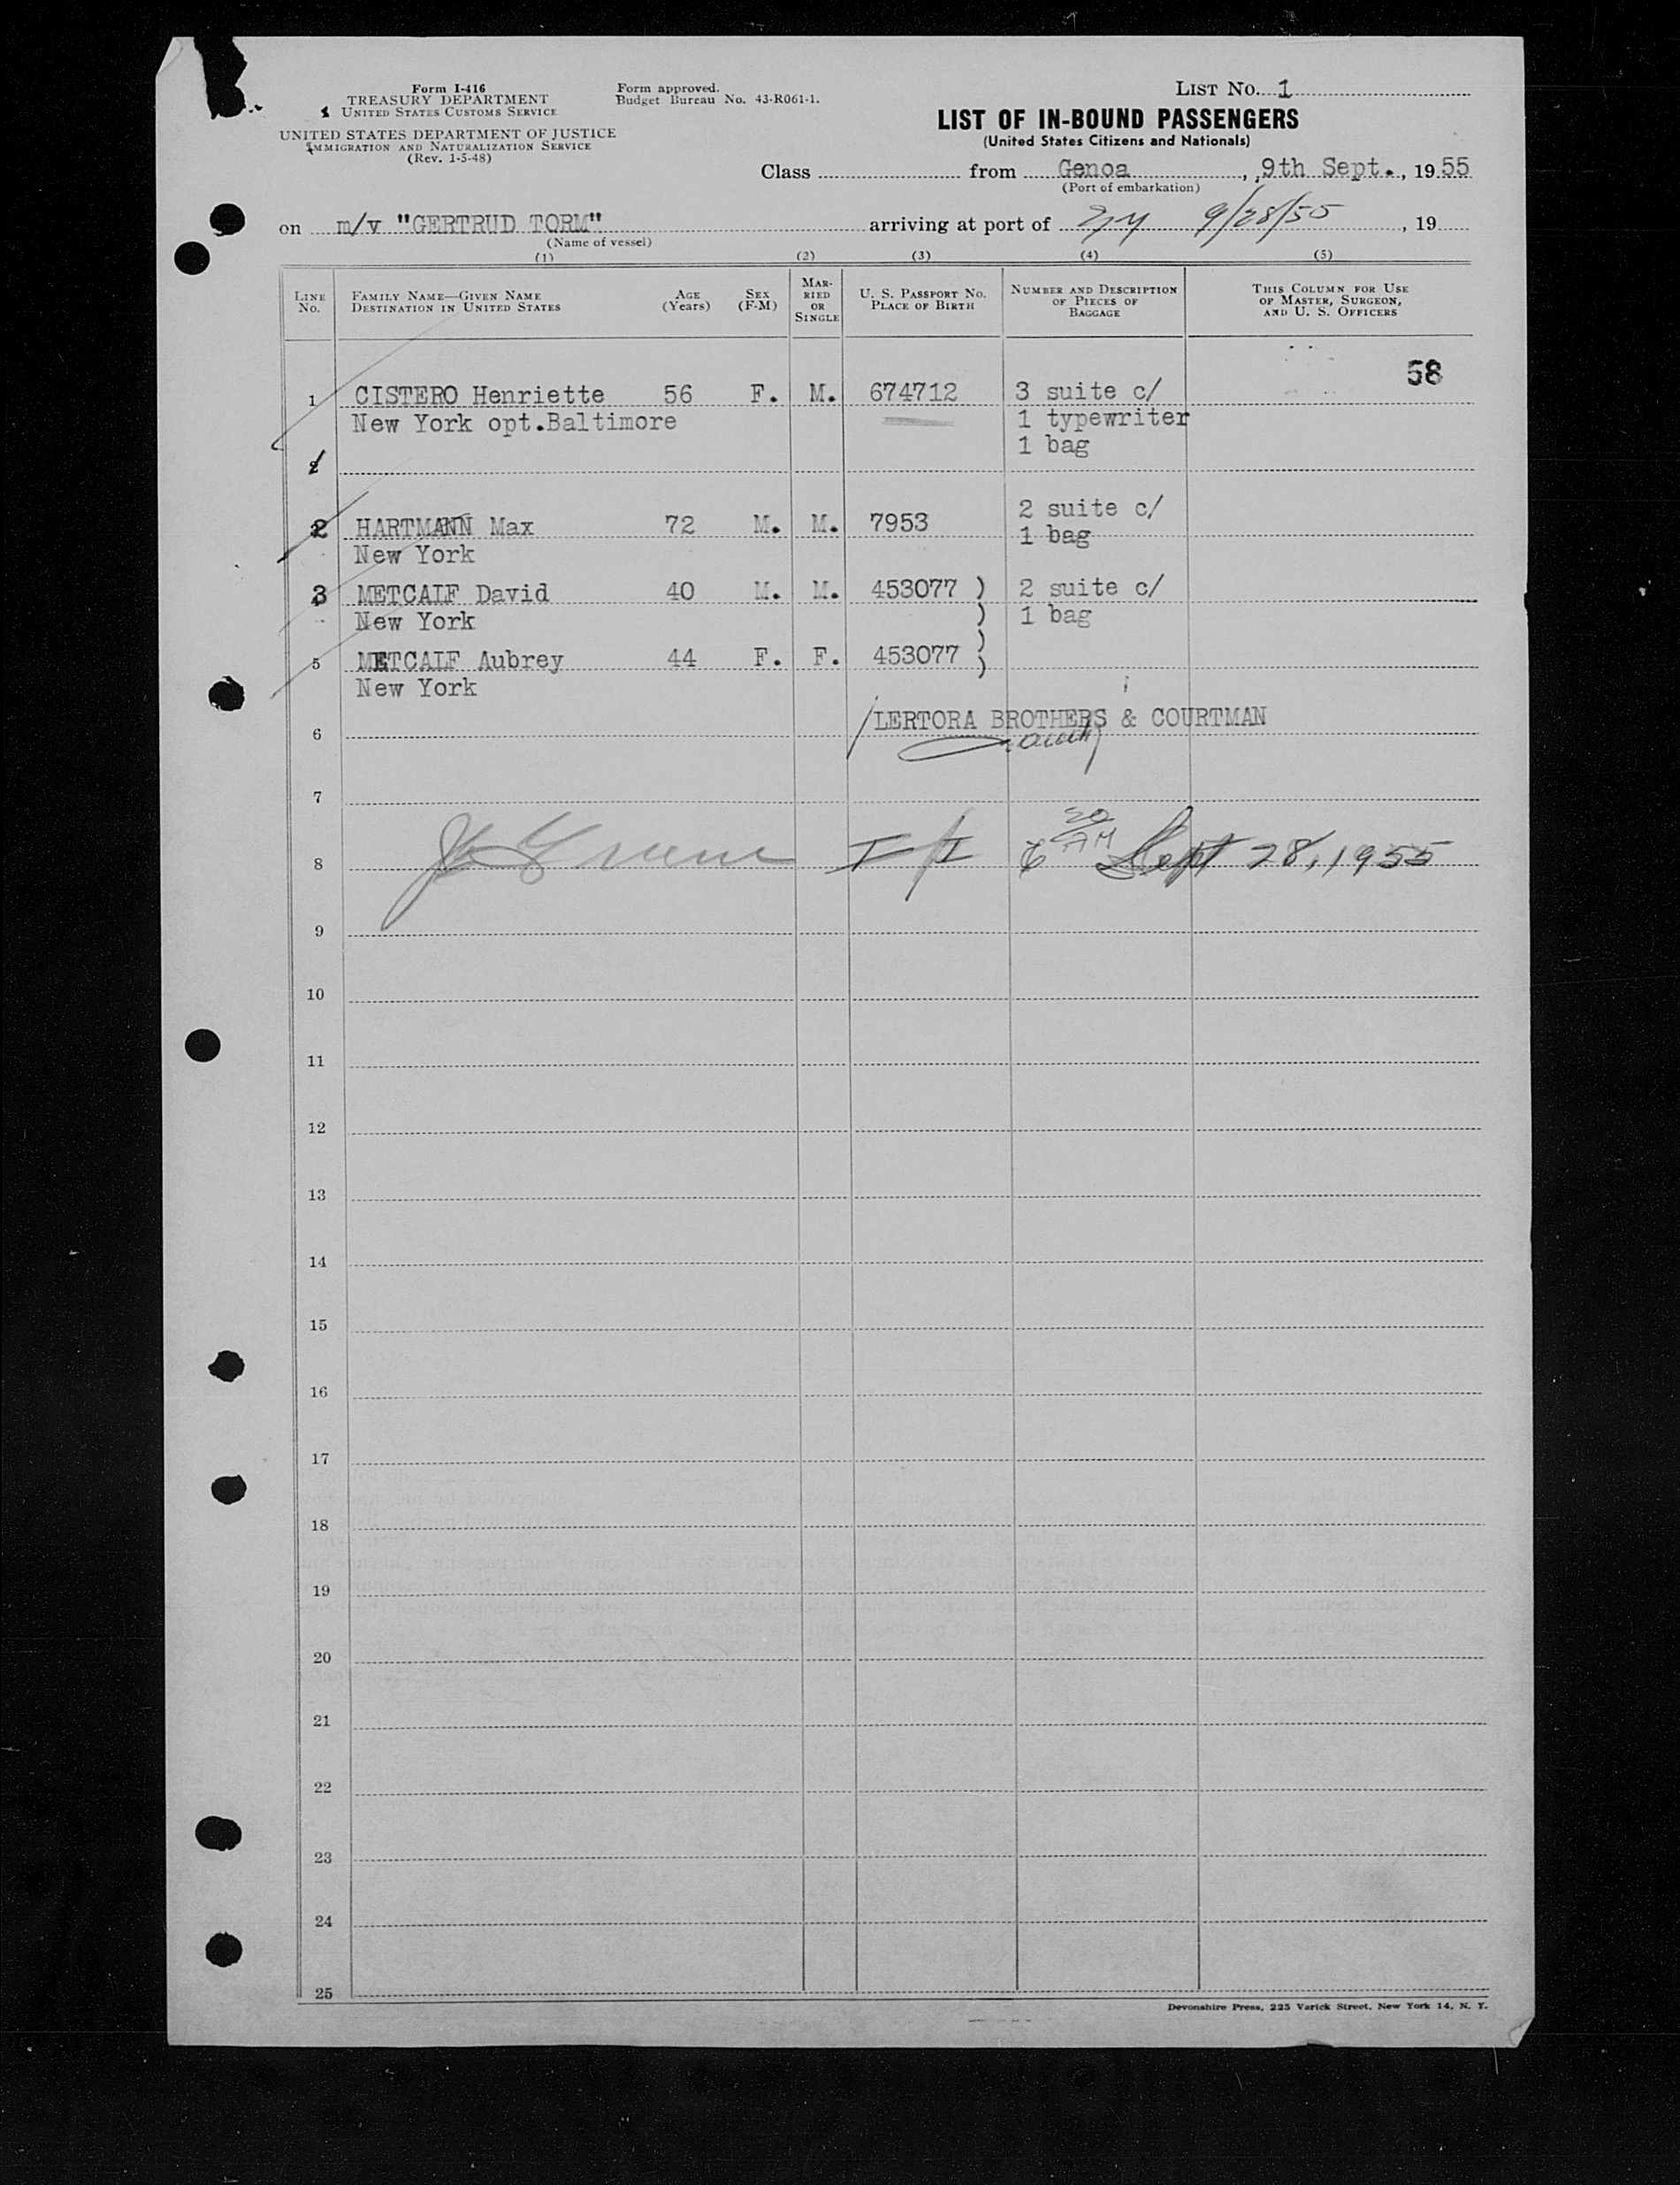 Form I-416
TREASURY DEPARTMENT
UNITED STATES CUSTOMS SERVICE
UNITED STATES DEPARTMENT OF JUSTICE
IMMIGRATION AND NATURALIZATION SERVICE
(Rev. 1-5-48)
Form approved.
Budget Bureau No. 43-R061-1.
LIST No. 1
LIST OF IN-BOUND PASSENGERS
(United States Citizens and Nationals)
Class from Genoa, 9th Sept., 1955
(Port of embarkation)
on m/v "GERTRUD TORM" arriving at port of NY 9/28/55, 19
(Name of vessel)
(1) (2) (3) (4) (5)
LINE No. FAMILY NAME—GIVEN NAME DESTINATION IN UNITED STATES AGE (Years) SEX (F-M) MARRIED OR SINGLE U. S. PASSPORT No. PLACE OF BIRTH NUMBER AND DESCRIPTION OF PIECES OF BAGGAGE THIS COLUMN FOR USE OF MASTER, SURGEON, AND U. S. OFFICERS
58
1 CISTERO Henriette 56 F. M. 674712 3 suite c/
New York opt.Baltimore 1 typewriter
1 bag
2 HARTMANN Max 72 M. M. 7953 2 suite c/
1 bag
New York
3 METCALF David 40 M. M. 453077 ) 2 suite c/
New York ) 1 bag
5 METCALF Aubrey 44 F. F. 453077 )
New York
LERTORA BROTHERS & COURTMAN
6
7
8 Sept 28, 1955
9
10
11
12
13
14
15
16
17
18
19
20
21
22
23
24
25
Devonshire Press, 225 Varick Street, New York 14, N. Y.